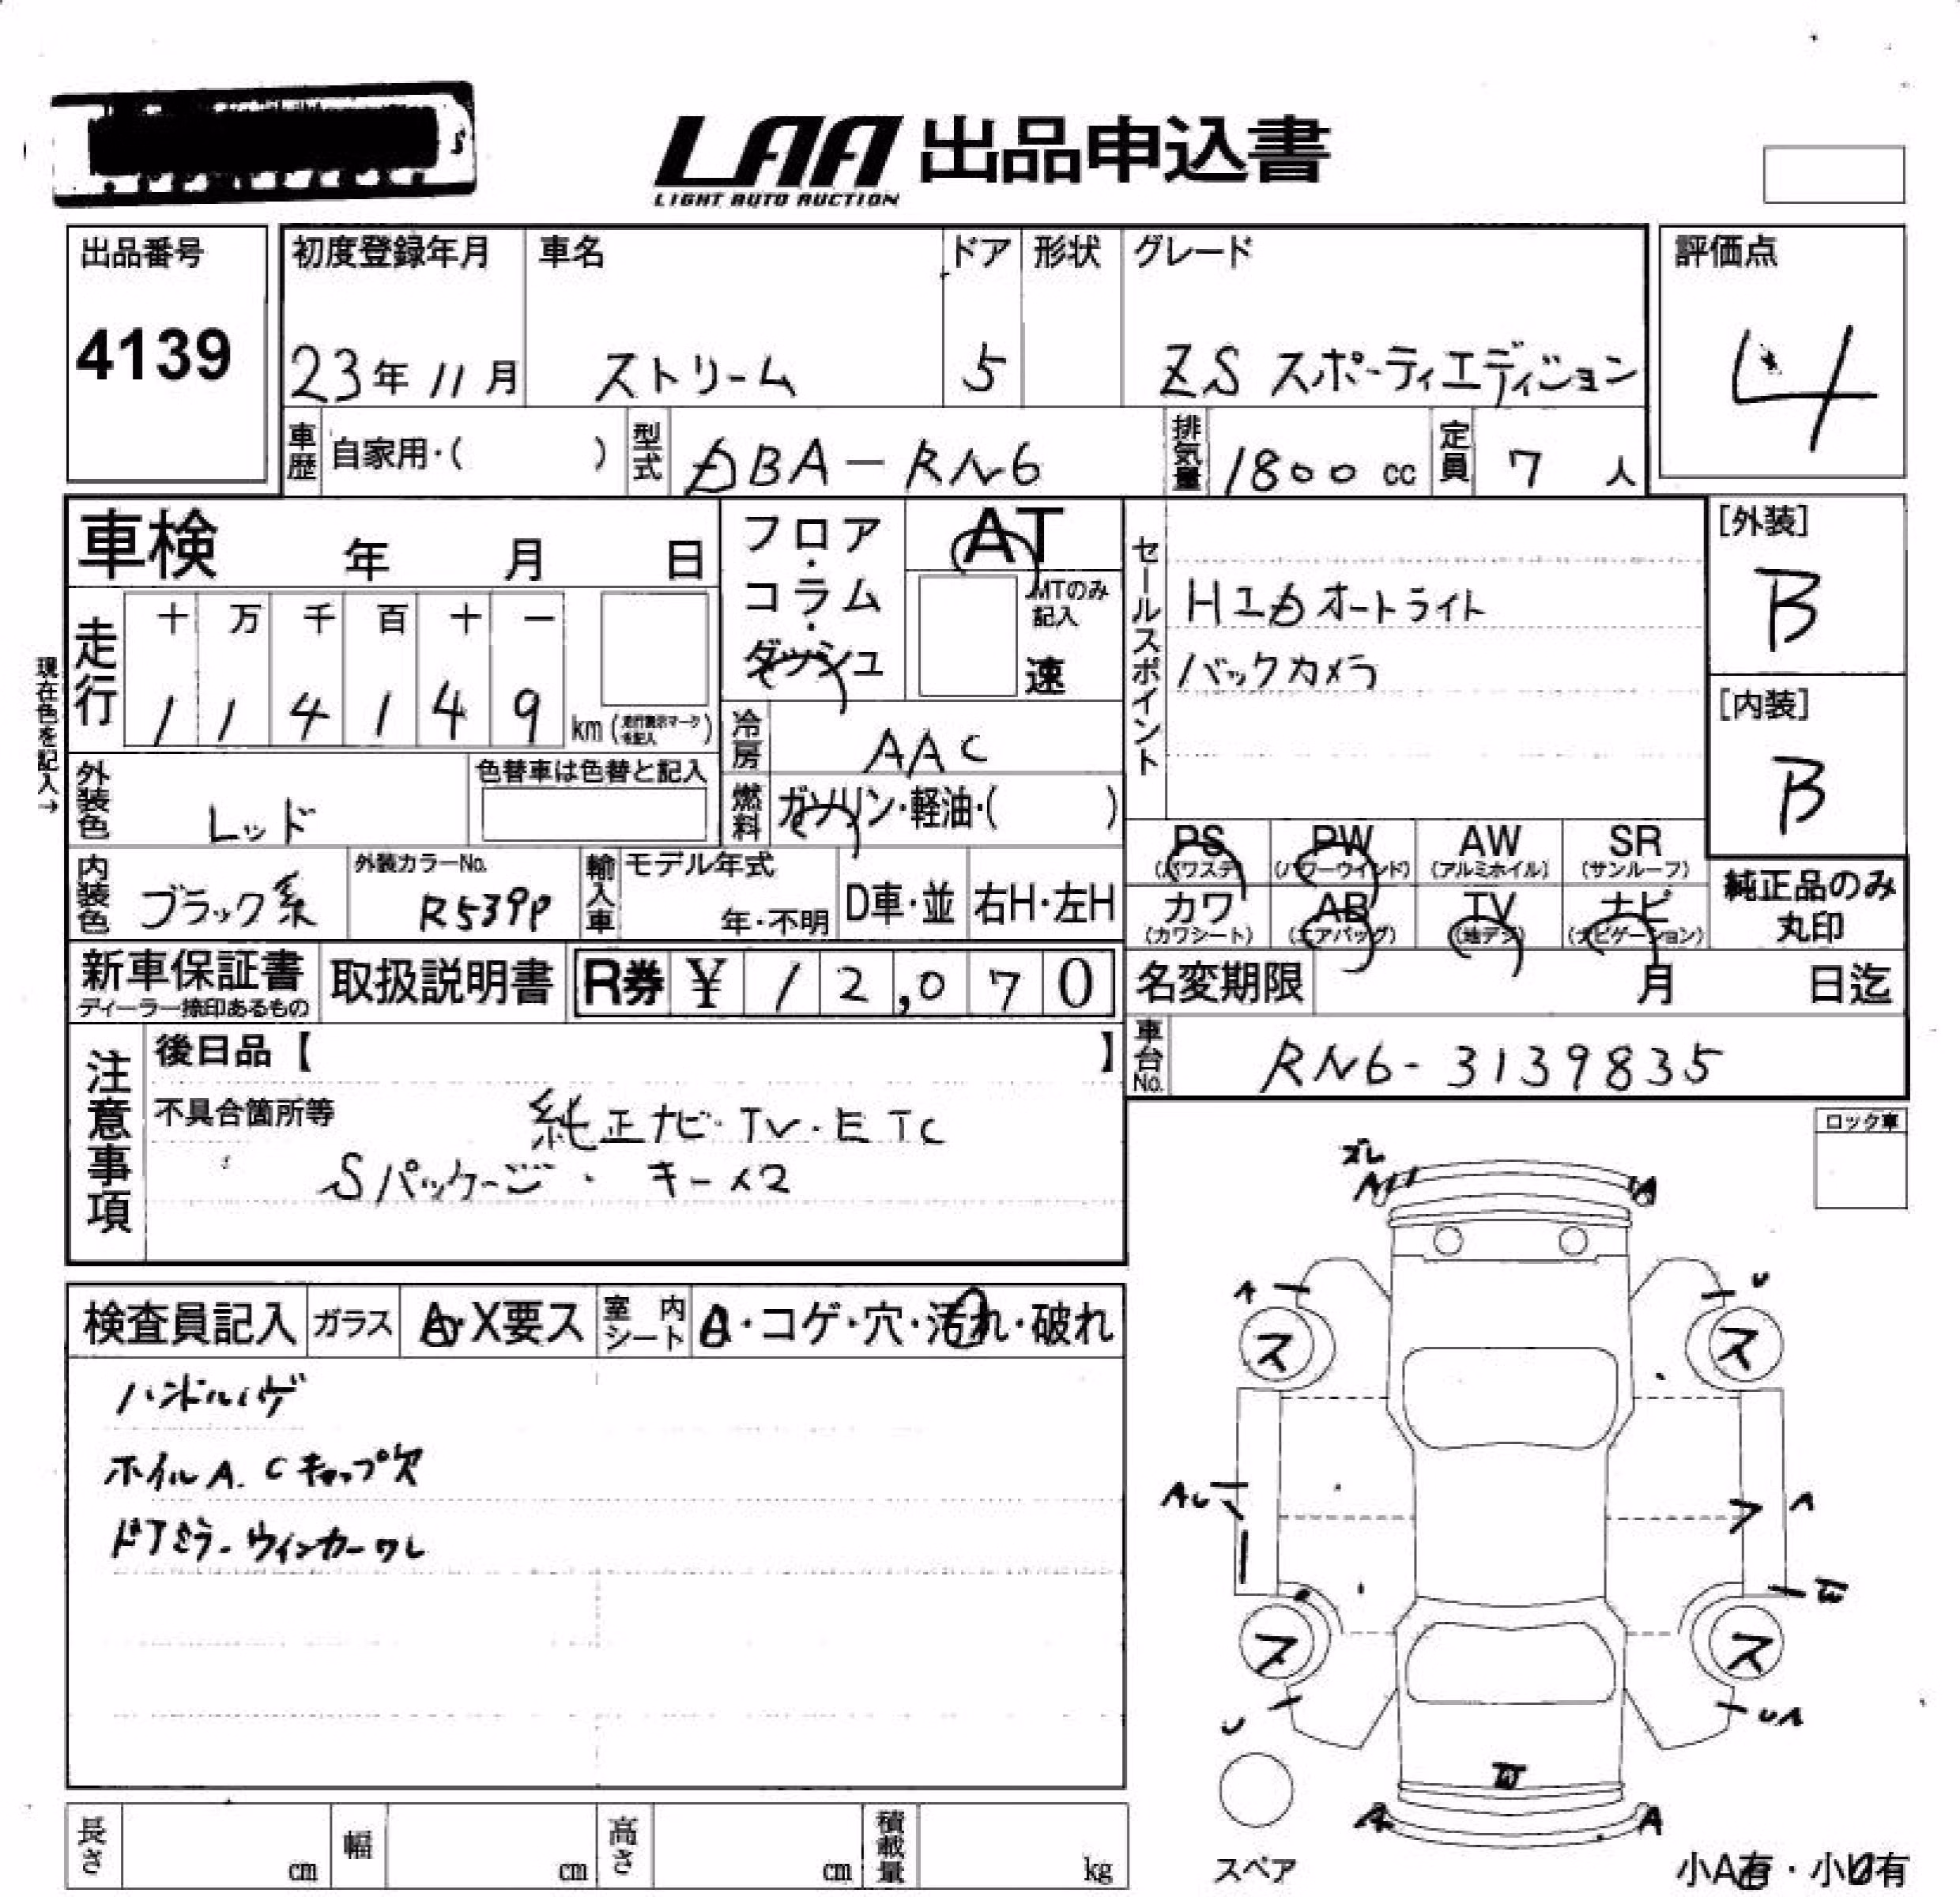 LAA 出品申込書
LIGHT AUTO AUCTION
出品番号
4139
初度登録年月 車名 ドア 形状 グレード
23年11月 ストリーム 5 ZS スポーティエディション
評価点
4
車歴 自家用・( ) 型式 DBA-RN6 排気量 1800cc 定員 7人
車検 年 月 日
フロア・コラム・ダッシュ
AT
MTのみ記入
速
セールスポイント
HID オートライト
バックカメラ
[外装]
B
[内装]
B
現在色を記入→
走行 十 万 千 百 十 一
1 1 4 1 4 9 km (走行表示マークを記入)
冷房 AAC
外装色 レッド 色替車は色替と記入
燃料 ガソリン・軽油・( )
内装色 ブラック系 外装カラーNo. R539P 輸入車 モデル年式 年・不明 D車・並 右H・左H
PS (パワステ) PW (パワーウインド) AW (アルミホイル) SR (サンルーフ)
カワ (カワシート) AB (エアバッグ) TV (地デジ) ナビ (ナビゲーション)
純正品のみ
丸印
新車保証書 ディーラー捺印あるもの 取扱説明書 R券 ¥ 12,070
名変期限 月 日迄
車台No. RN6-3139835
注意事項
後日品【 】
不具合箇所等 純正ナビ・TV・ETC
Sパッケージ・キー×2
ロック車
検査員記入 ガラス A・X要ス 室内シート A・コゲ・穴・汚れ・破れ
ハンドルハゲ
ホイルA.Cキャップ欠
ドアミラーウィンカーワレ
ズレ
A A
A U
ス ス
AU A
W
ス ス
U UA
W
A A
スペア
小A有・小U有
長さ cm 幅 cm 高さ cm 積載量 kg